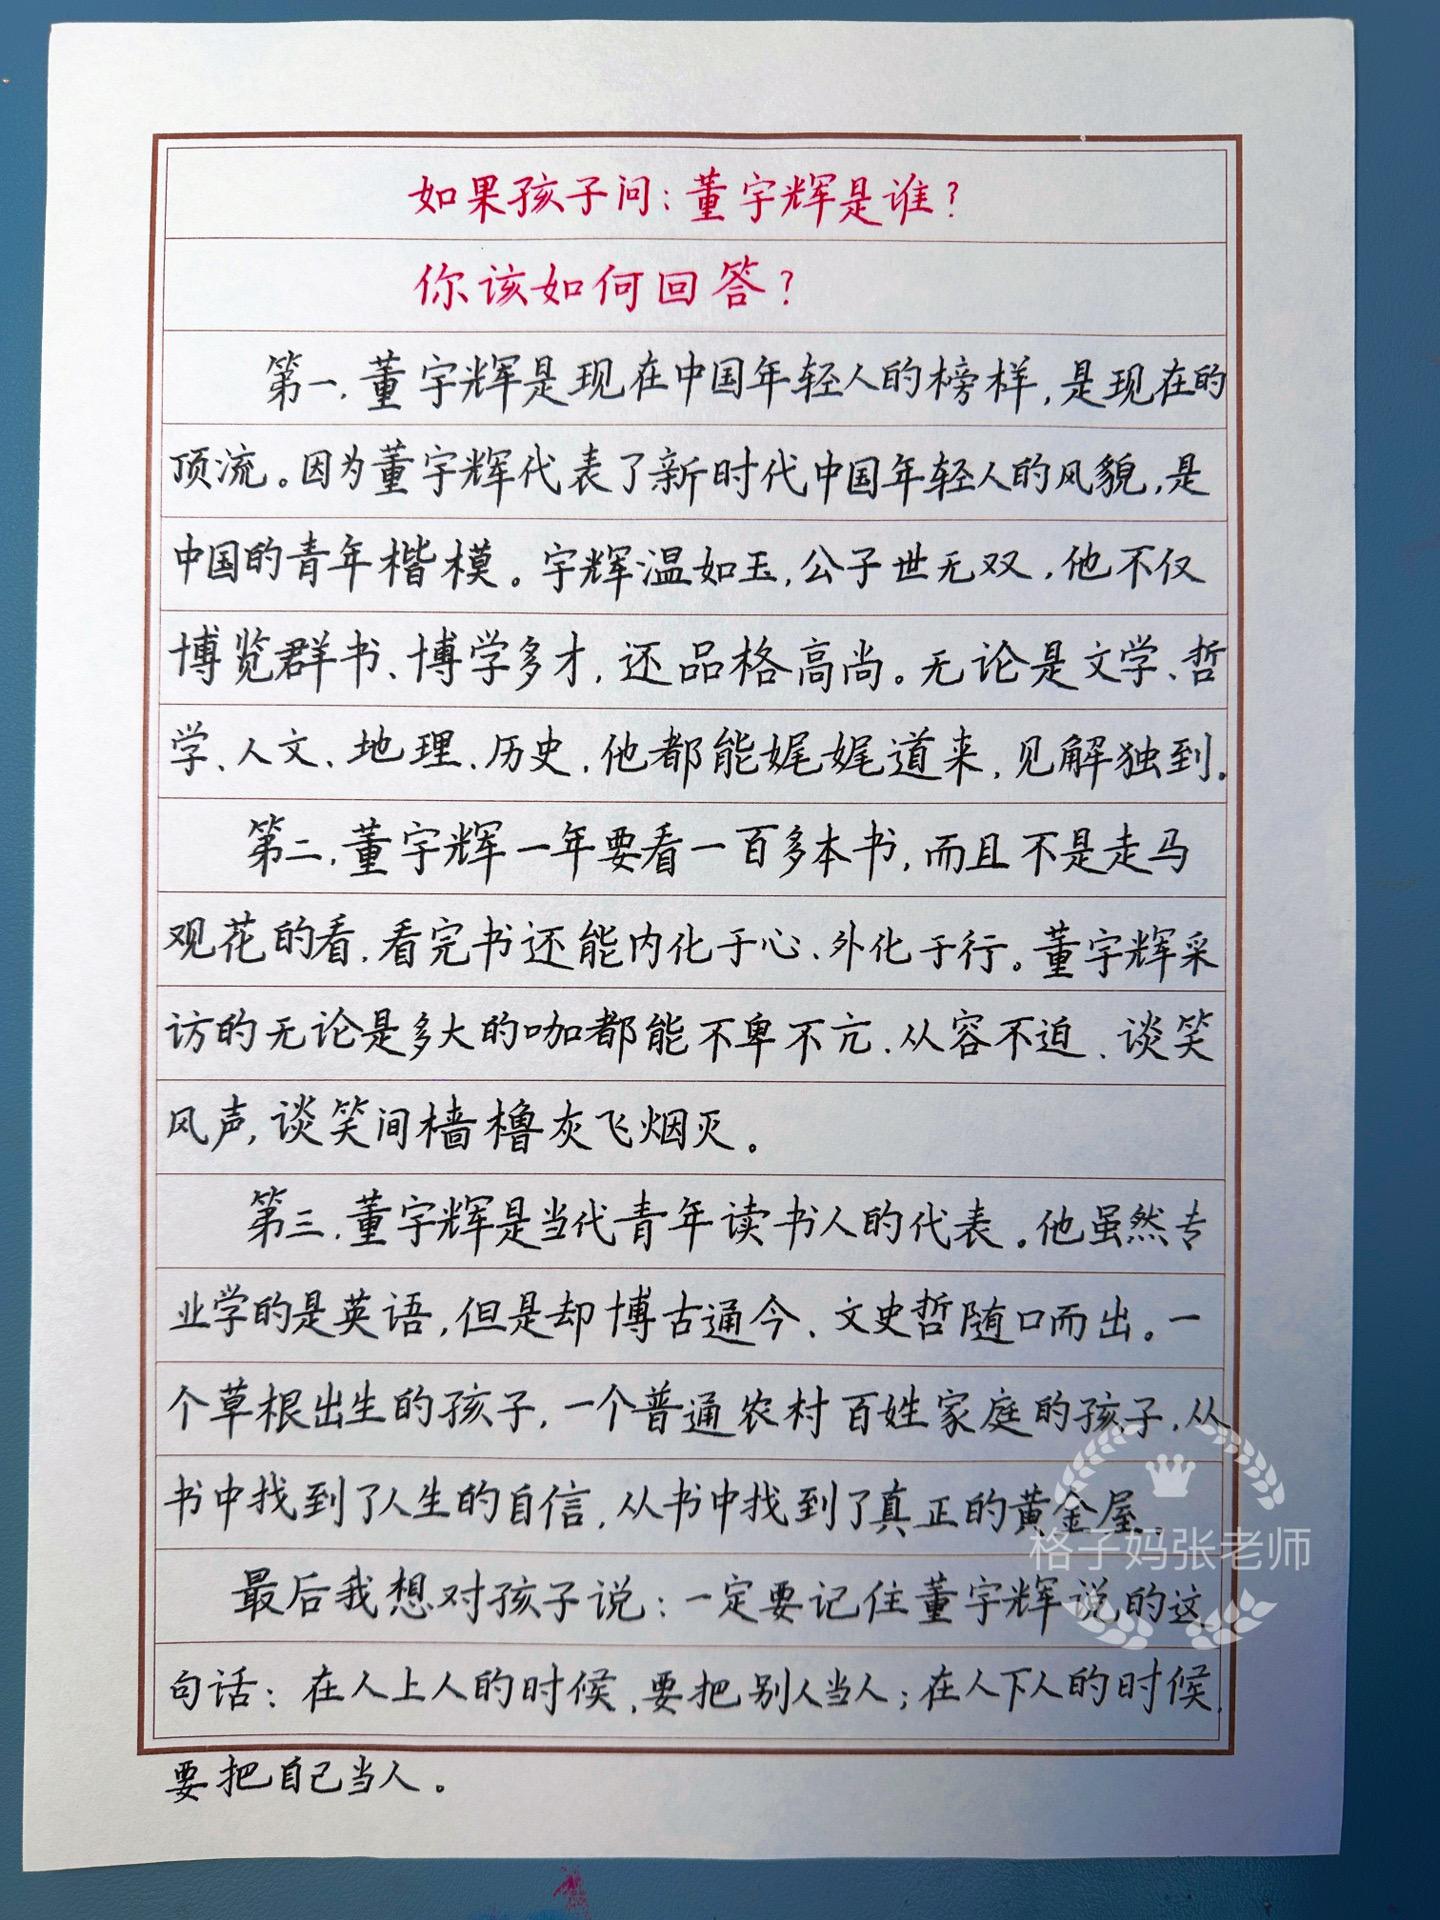 如果孩子问：董宇辉是谁？
你该如何回答？
第一，董宇辉是现在中国年轻人的榜样，是现在的
顶流。因为董宇辉代表了新时代中国年轻人的风貌，是
中国的青年楷模。宇辉温如玉，公子世无双，他不仅
博览群书、博学多才，还品格高尚。无论是文学、哲
学、人文、地理、历史，他都能娓娓道来，见解独到。
第二，董宇辉一年要看一百多本书，而且不是走马
观花的看，看完书还能内化于心、外化于行。董宇辉采
访的无论是多大的咖都能不卑不亢、从容不迫、谈笑
风声，谈笑间樯橹灰飞烟灭。
第三，董宇辉是当代青年读书人的代表。他虽然专
业学的是英语，但是却博古通今、文史哲随口而出。一
个草根出生的孩子，一个普通农村百姓家庭的孩子，从
书中找到了人生的自信，从书中找到了真正的黄金屋。
格子妈张老师
最后我想对孩子说：一定要记住董宇辉说的这
句话：在人上人的时候，要把别人当人；在人下人的时候，
要把自己当人。